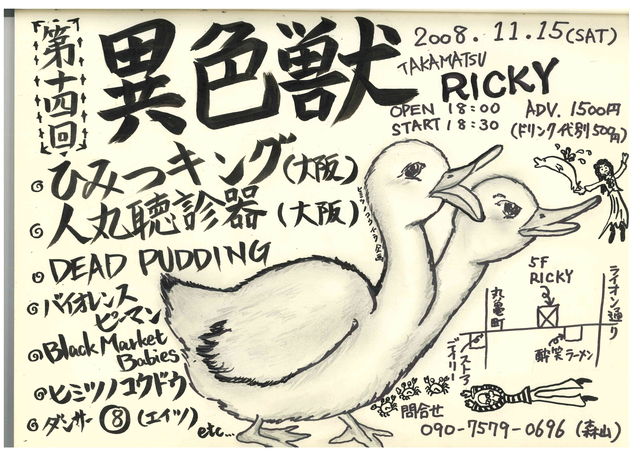 第十四回
異色獣
2008. 11.15(SAT)
TAKAMATSU
RICKY
OPEN 18:00 ADV. 1500円
START 18:30 (ドリンク代別500円)
ひみつキング(大阪)
人丸聴診器(大阪)
DEAD PUDDING
バイオレンス
ピーマン
Black Market
Babies
ヒミツノコウドウ
ダンサー⑧(エイツ)
etc...
5F
RICKY
丸亀町
ライオン通り
デイリーストア
酔笑ラーメン
問合せ
090-7579-0696 (森山)